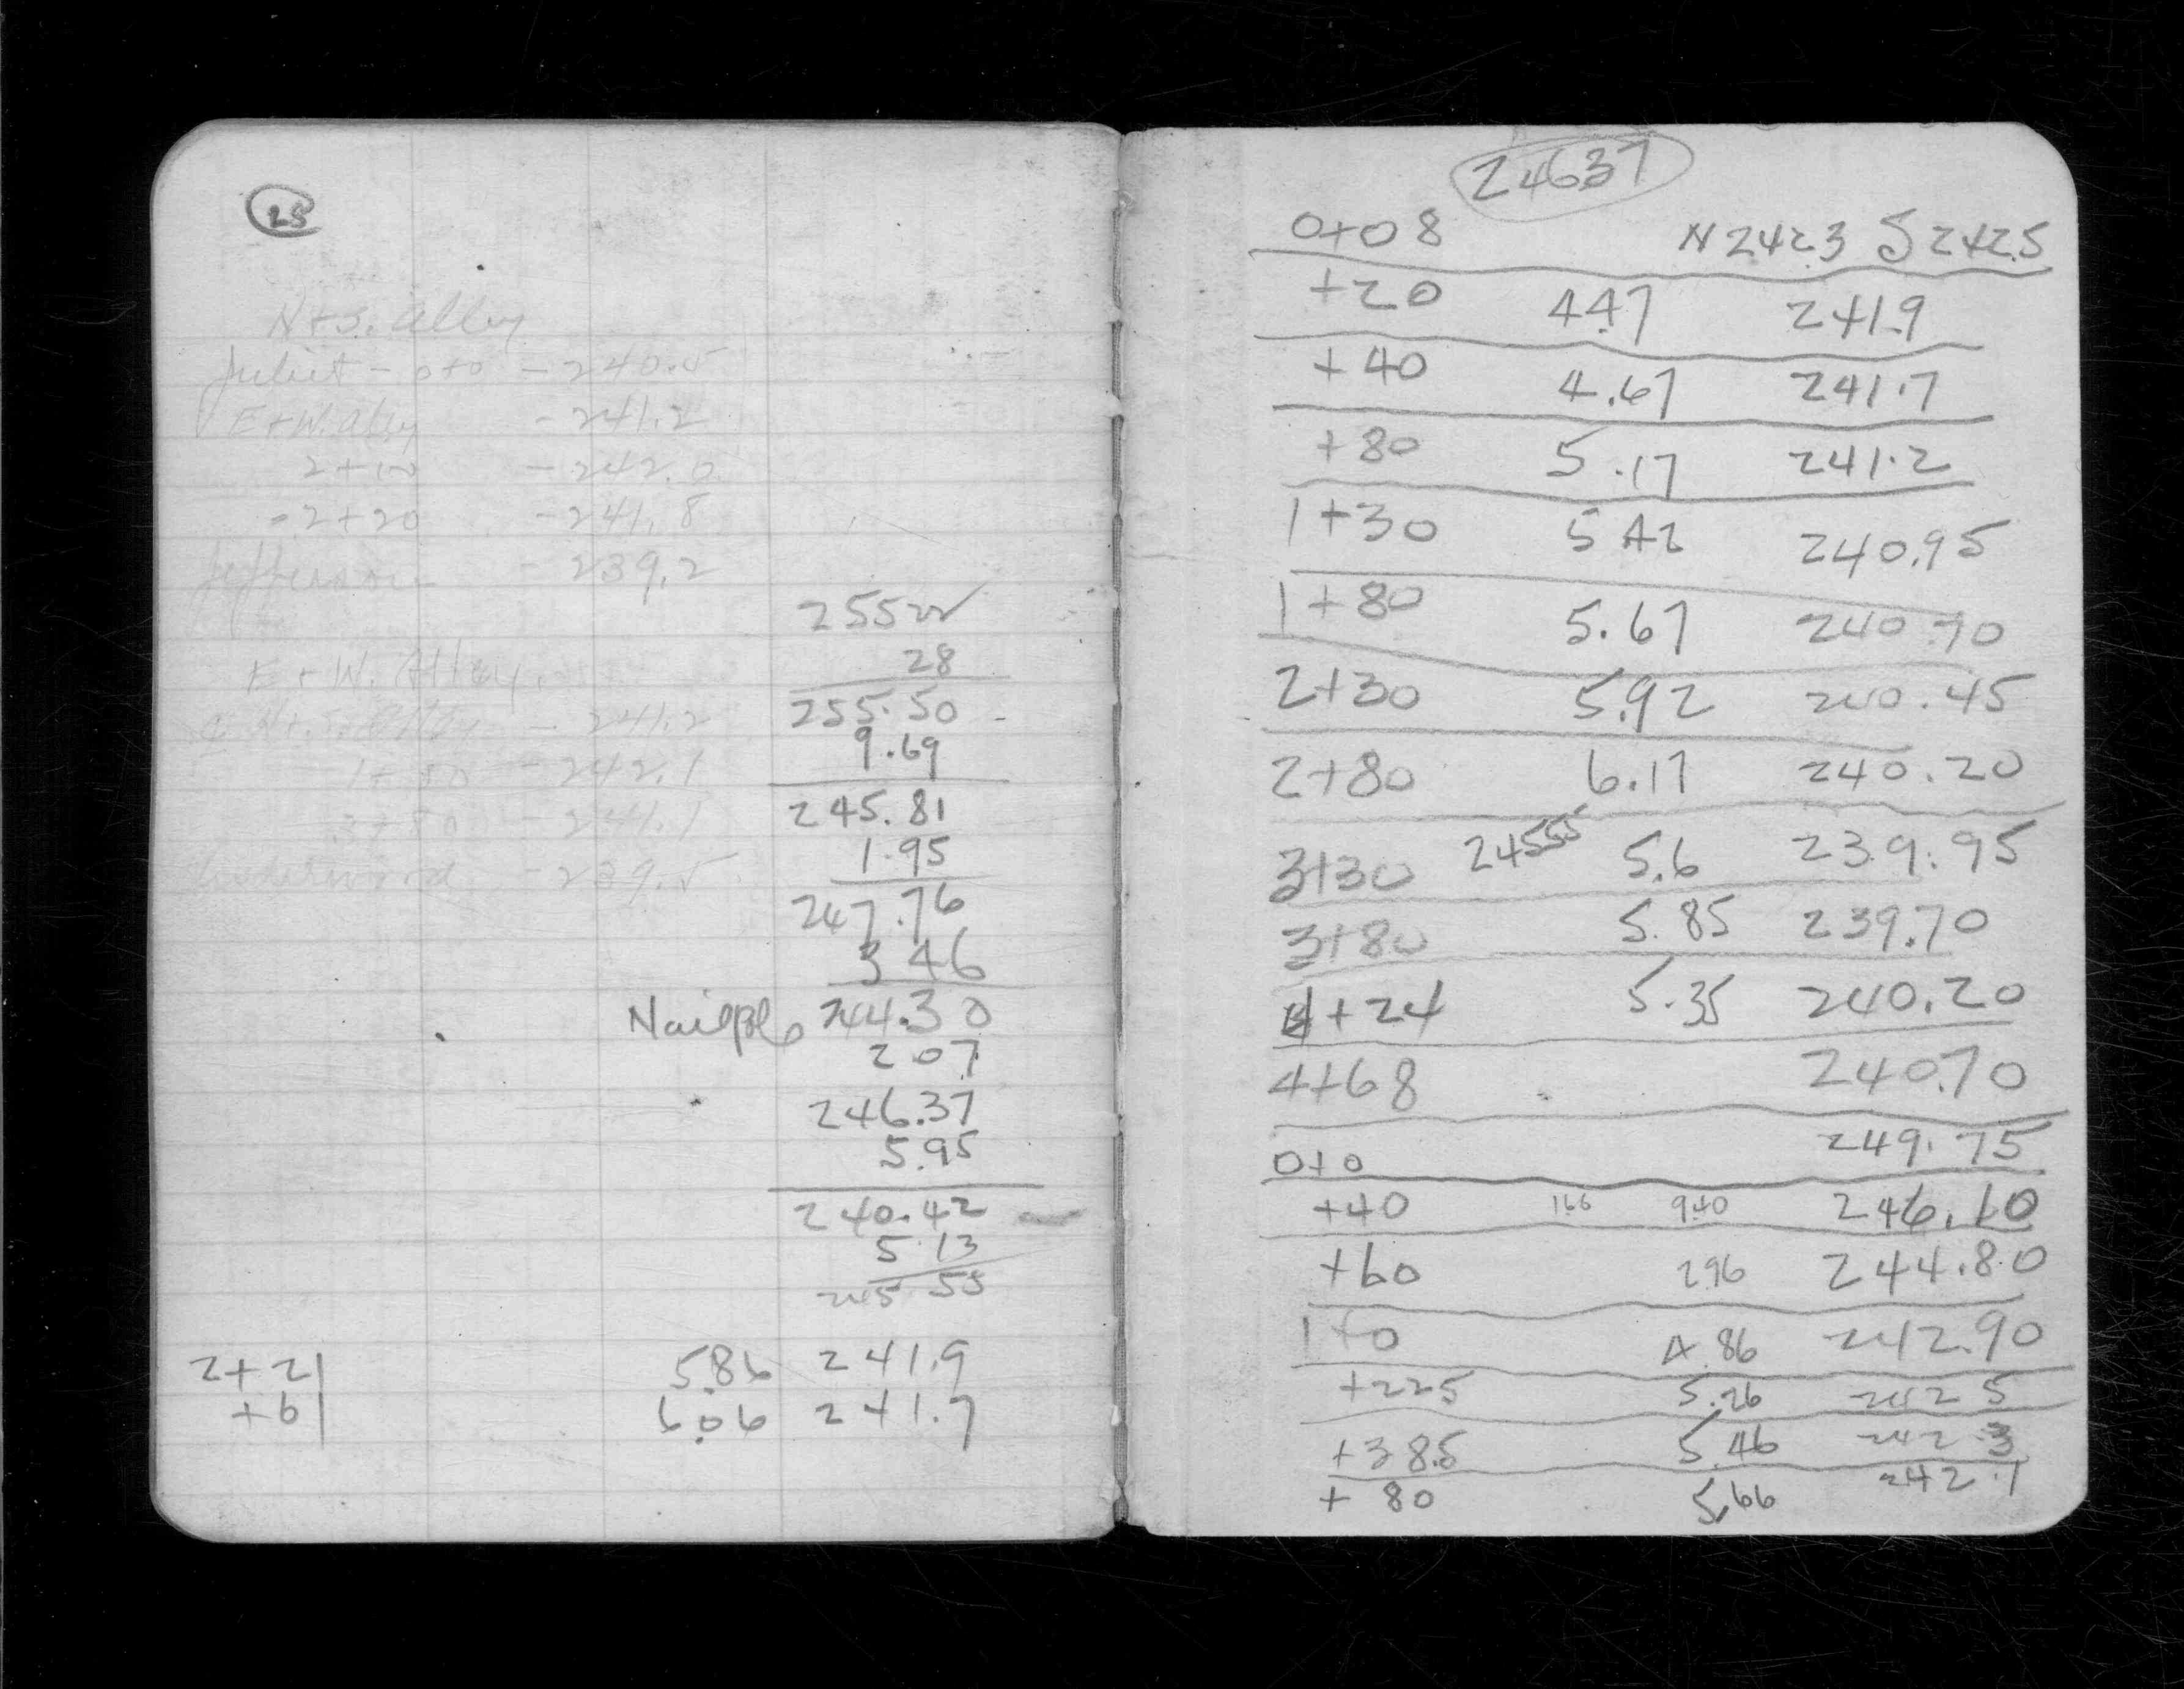 25
N+S. Alley
Juliet - 0+0 - 240.5
E+W. alley - 241.2
2+00 - 242.0
2+20 - 241.8
Jefferson - 239.2
E+W. Alley
@ N+S. Alley - 241.2
1+50 - 242.1
3+50 - 241.1
Underwood - 239.5
25522
28
255.50
9.69
245.81
1.95
247.76
346
Nail 244.30
207
246.37
5.95
240.42
5.13
245.55
2+21 5.86 241.9
+61 6.06 241.7
24637
0+08 N 242.3 S 242.5
+20 4.47 241.9
+40 4.67 241.7
+80 5.17 241.2
1+30 5 42 240.95
1+80 5.67 240.70
2+30 5.92 240.45
2+80 6.17 240.20
3+30 24555 5.6 239.95
3+80 5.85 239.70
4+24 5.35 240.20
4+68 240.70
0+0 249.75
+40 166 940 246.10
+60 296 244.80
1+0 4.86 242.90
+225 5.26 242 5
+38.5 5.46 242.3
+80 5.66 242.1